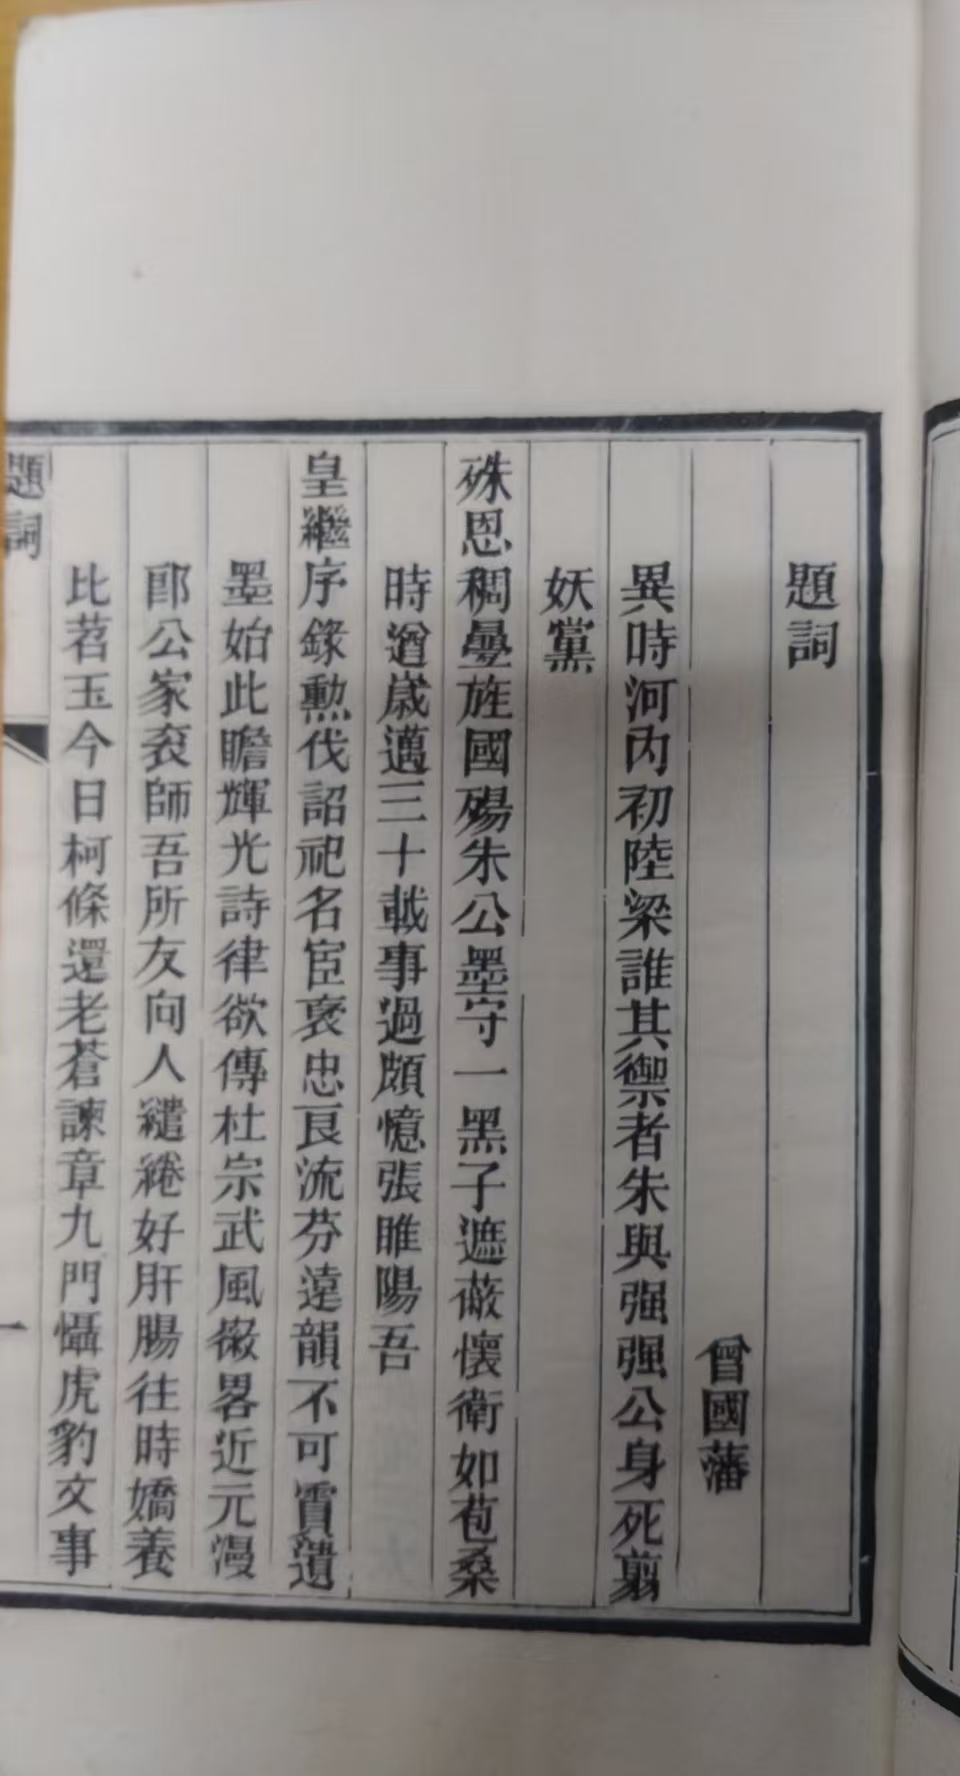 題詞
曾國藩
異時河內初陸梁誰其禦者朱與强强公身死翦
妖黨
殊恩稠疊旌國殤朱公墨守一黑子遮蔽懷衛如苞桑
時遒歲邁三十載事過頗憶張睢陽吾
皇繼序錄勲伐詔祀名宦褒忠良流芬遠韻不可賈遺
墨始此瞻輝光詩律欲傳杜宗武風徽畧近元漫
郎公家袞師吾所友向人繾綣好肝腸往時嬌養
比苕玉今日柯條還老蒼諫章九門懾虎豹文事
題詞
一